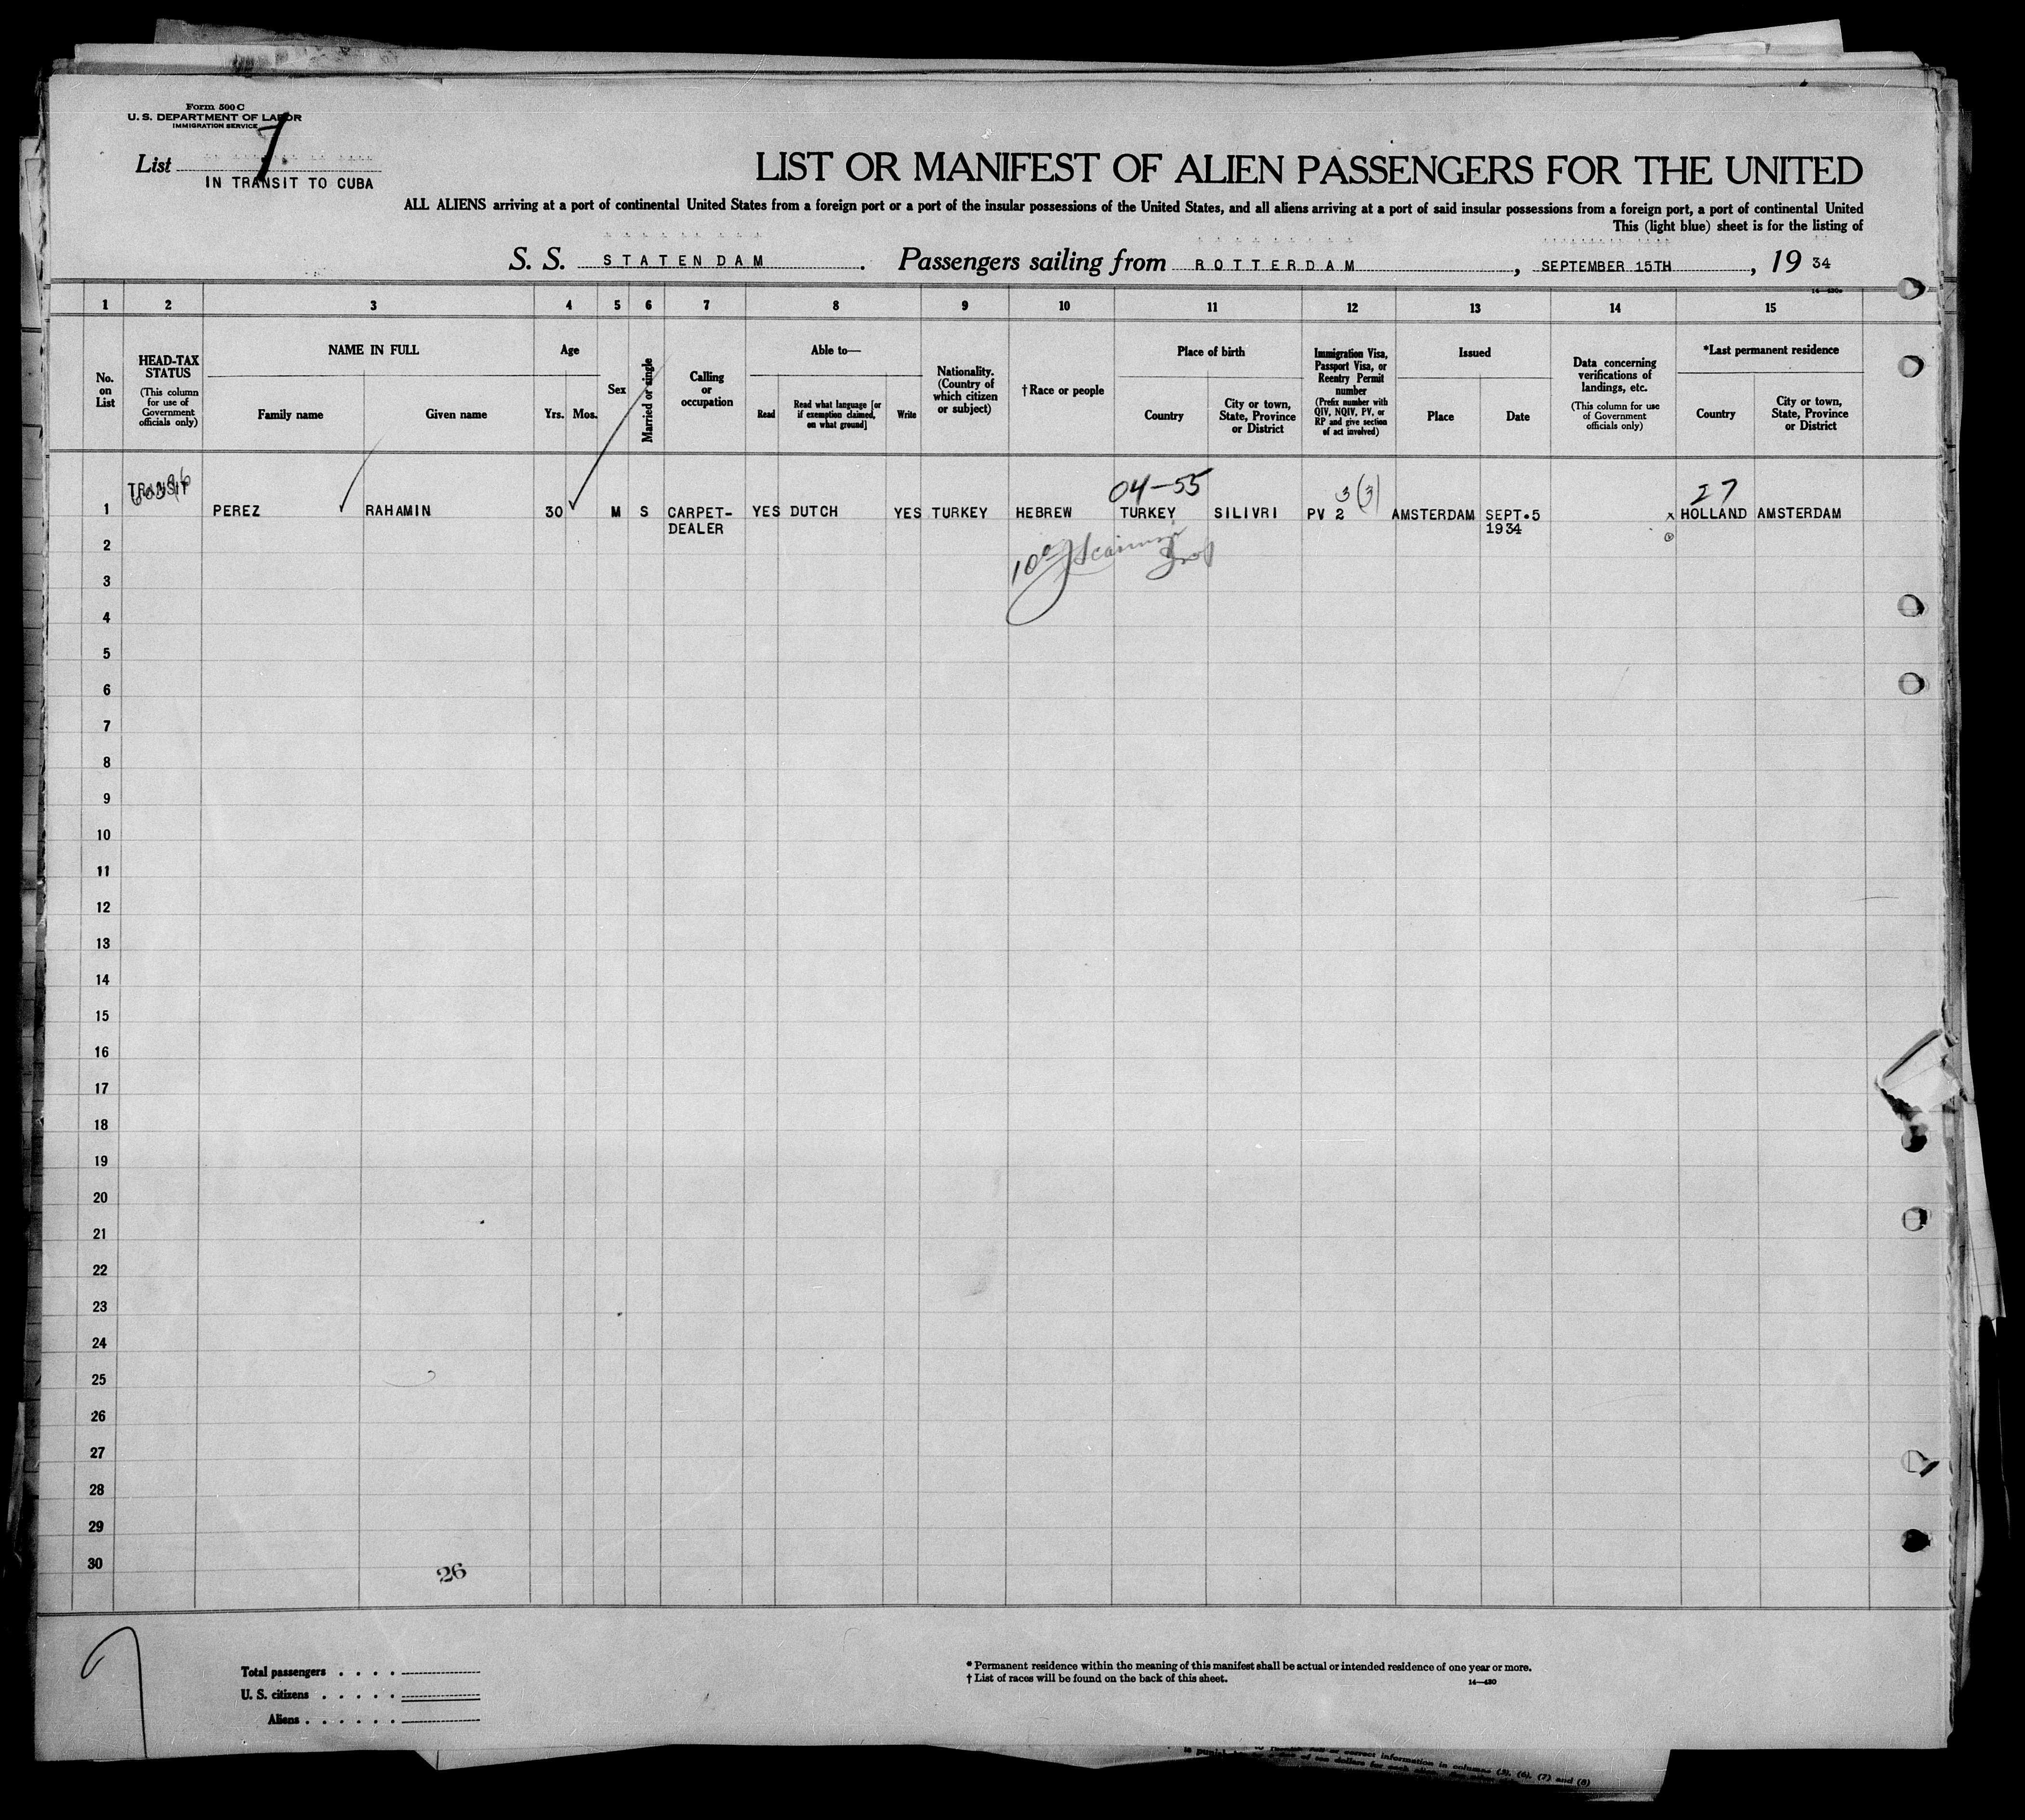 Form 500 C
U. S. DEPARTMENT OF LABOR
IMMIGRATION SERVICE
List 7
IN TRANSIT TO CUBA
LIST OR MANIFEST OF ALIEN PASSENGERS FOR THE UNITED
ALL ALIENS arriving at a port of continental United States from a foreign port or a port of the insular possessions of the United States, and all aliens arriving at a port of said insular possessions from a foreign port, a port of continental United
This (light blue) sheet is for the listing of
S. S. STATENDAM. Passengers sailing from ROTTERDAM, SEPTEMBER 15TH, 19 34
1 2 3 4 5 6 7 8 9 10 11 12 13 14 15
No. on List
HEAD-TAX STATUS
(This column for use of Government officials only)
NAME IN FULL
Family name
Given name
Age
Yrs.
Mos.
Sex
Married or single
Calling or occupation
Able to—
Read
Read what language [or if exemption claimed, on what ground]
Write
Nationality. (Country of which citizen or subject)
† Race or people
Place of birth
Country
City or town, State, Province or District
Immigration Visa, Passport Visa, or Reentry Permit number
(Prefix number with QIV, NQIV, PV, or RP and give section of act involved)
Issued
Place
Date
Data concerning verifications of landings, etc.
(This column for use of Government officials only)
*Last permanent residence
Country
City or town, State, Province or District
TRANSIT
04-55
3(3)
27
1 PEREZ RAHAMIN 30 M S CARPET- YES DUTCH YES TURKEY HEBREW TURKEY SILIVRI PV 2 AMSTERDAM SEPT.5 x HOLLAND AMSTERDAM
DEALER 1934
2
3
4
5
6
7
8
9
10
11
12
13
14
15
16
17
18
19
20
21
22
23
24
25
26
27
28
29
30
26
Total passengers . . . .
U. S. citizens . . . . .
Aliens . . . . . .
* Permanent residence within the meaning of this manifest shall be actual or intended residence of one year or more.
† List of races will be found on the back of this sheet.
14—430
correct information in columns (5), (6), (7) and (8)
of ten dollars for each alien.